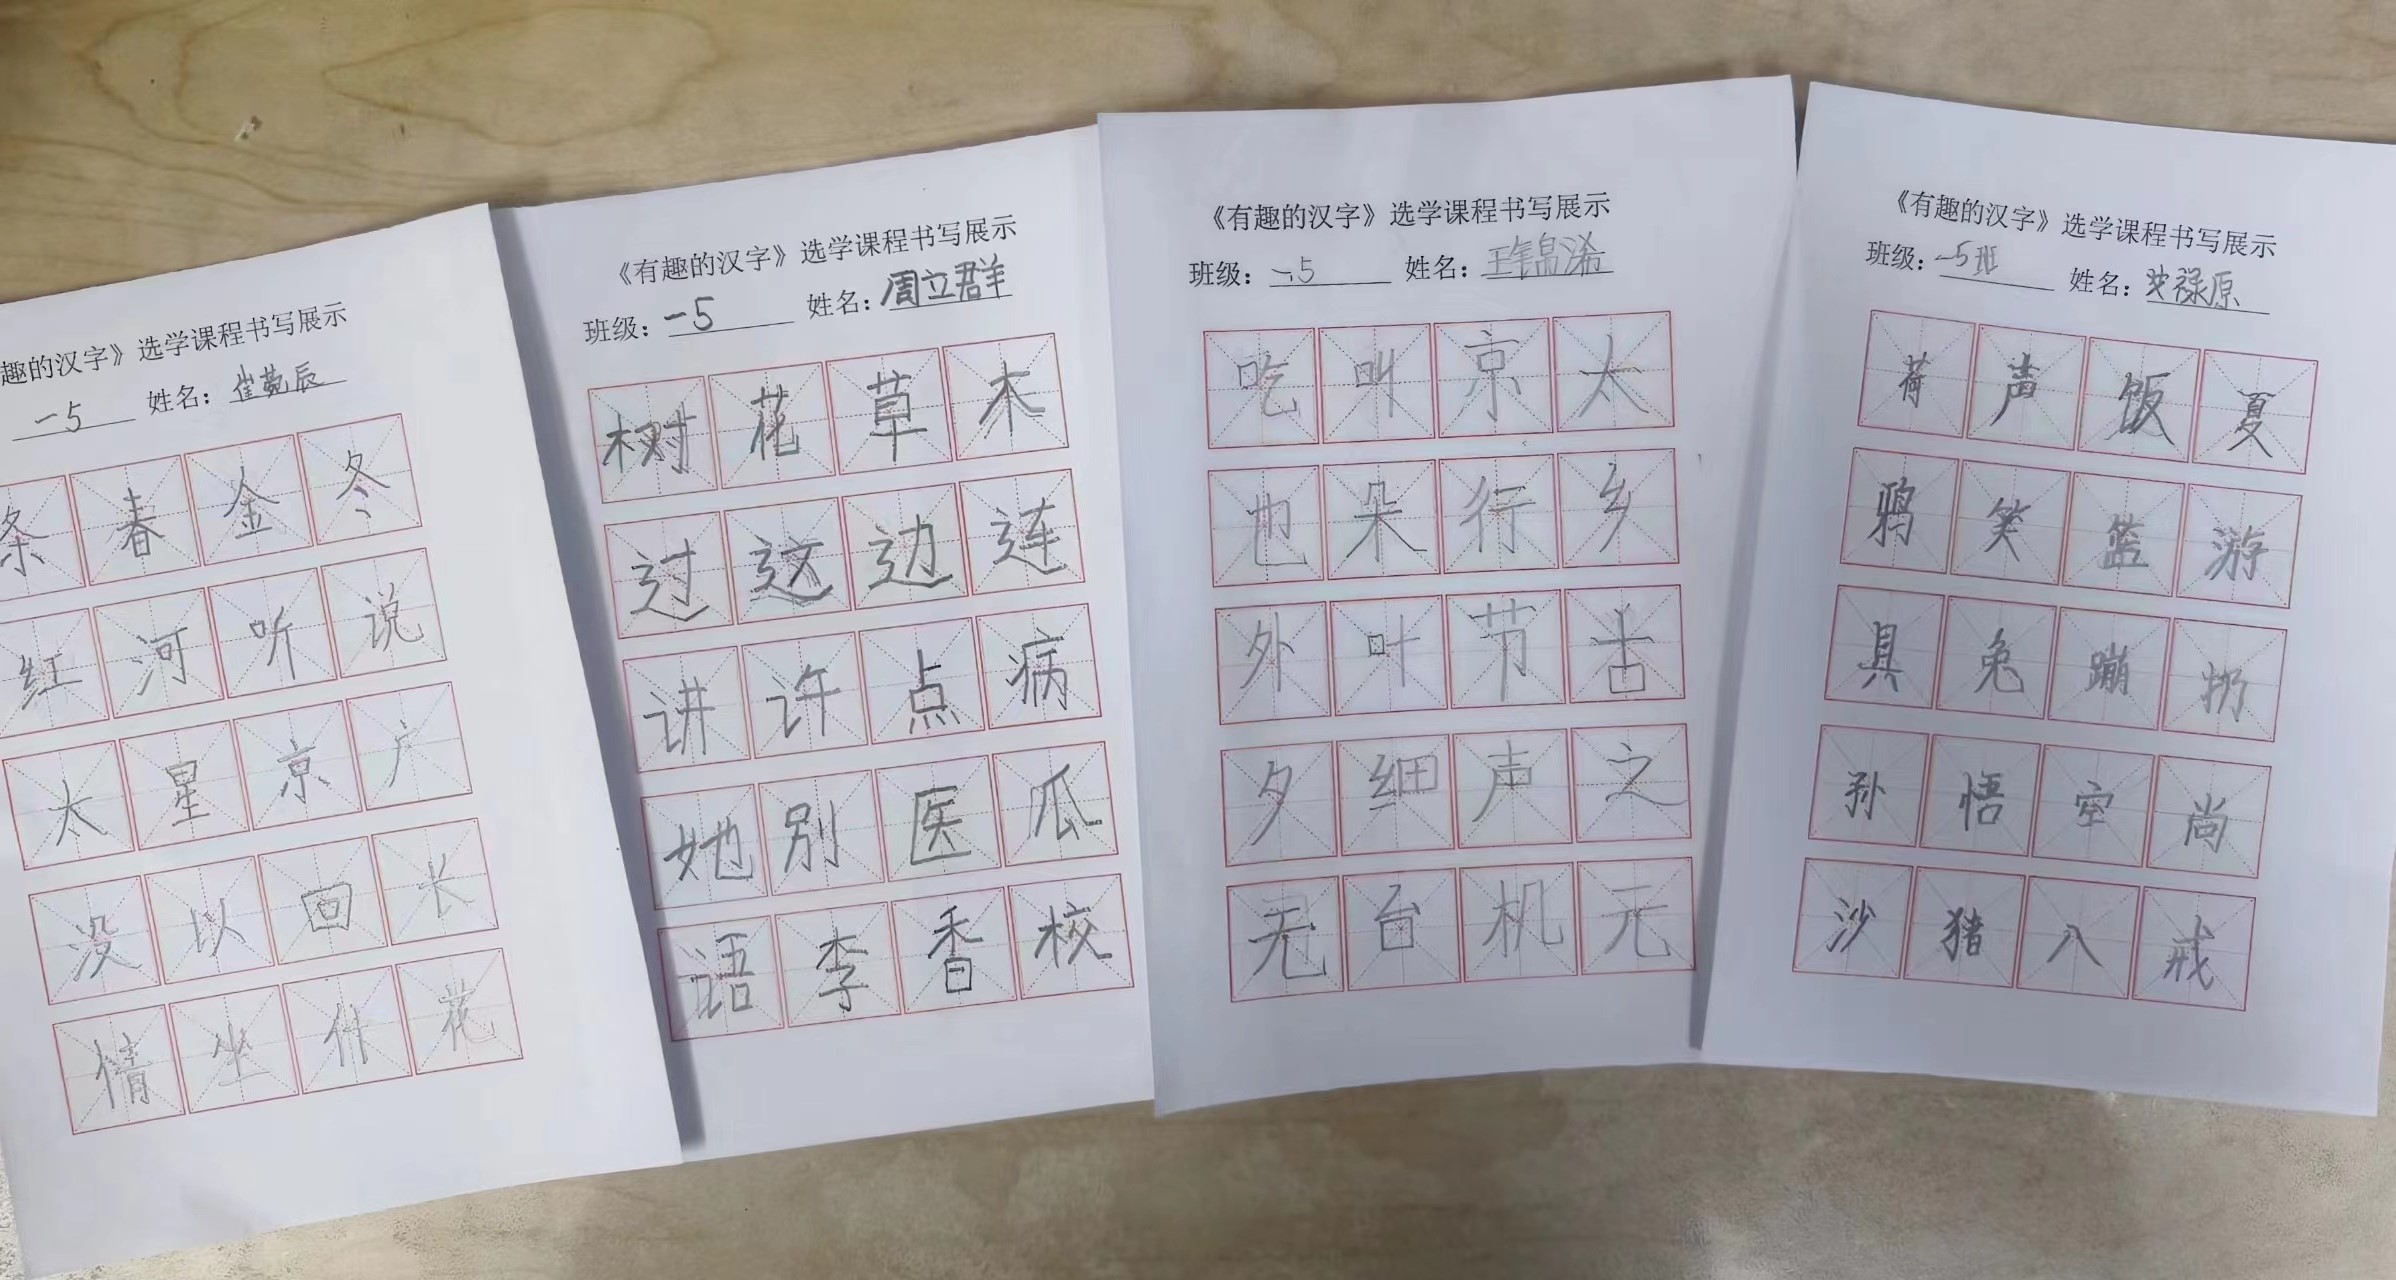 趣的汉字》选学课程书写展示
一5 姓名：崔菀辰
条春金冬
红河听说
太星京户
没以回长
情坐什花
《有趣的汉字》选学课程书写展示
班级：一5 姓名：周立群
树花草木
过这边连
讲许点病
她别医瓜
语李香校
《有趣的汉字》选学课程书写展示
班级：一.5 姓名：王锦浠
吃叫京太
也朵行乡
外叶节舌
夕细声之
无台机元
《有趣的汉字》选学课程书写展示
班级：一5班 姓名：禄原
荷声饭夏
鸦笑篮游
具兔蹦扔
孙悟空尚
沙猪八戒